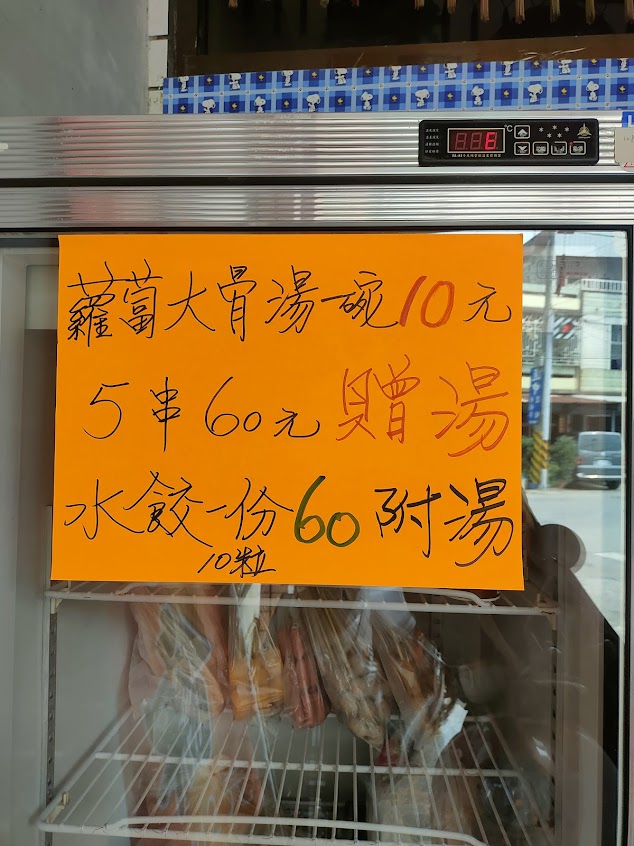 蘿蔔大骨湯一碗10元
5串60元 贈湯
水餃一份60附湯
10粒